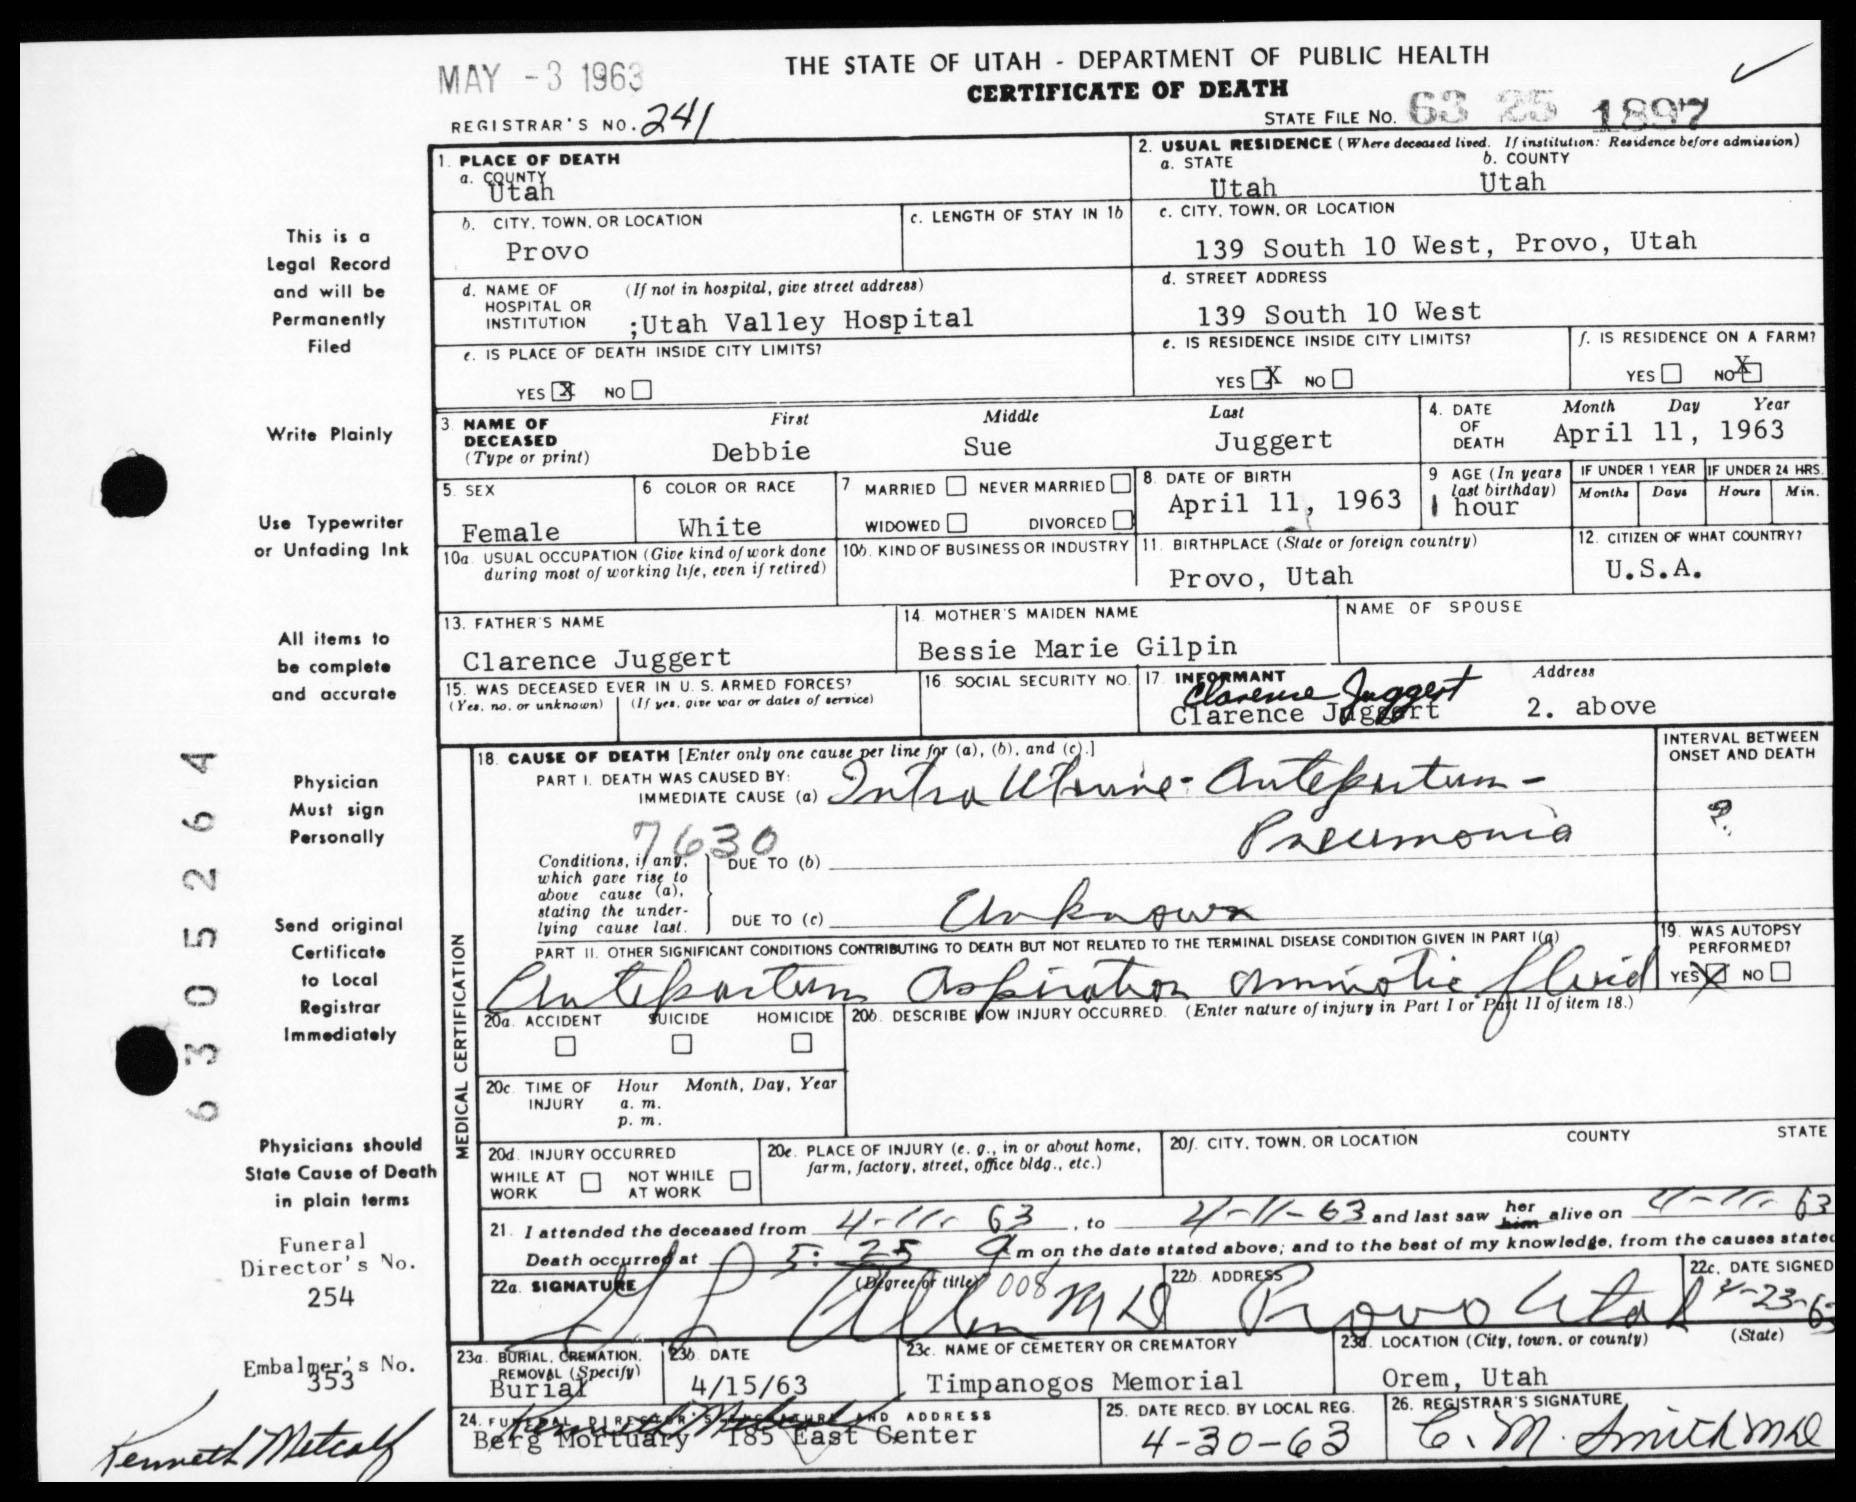 MAY -3 1963
THE STATE OF UTAH - DEPARTMENT OF PUBLIC HEALTH
CERTIFICATE OF DEATH
REGISTRAR'S NO. 241
STATE FILE NO. 63 25 1897
1. PLACE OF DEATH
a. COUNTY
Utah
2. USUAL RESIDENCE (Where deceased lived. If institution: Residence before admission)
a. STATE b. COUNTY
Utah Utah
b. CITY, TOWN, OR LOCATION
Provo
c. LENGTH OF STAY IN 1b
c. CITY, TOWN, OR LOCATION
139 South 10 West, Provo, Utah
d. NAME OF HOSPITAL OR INSTITUTION (If not in hospital, give street address)
;Utah Valley Hospital
d. STREET ADDRESS
139 South 10 West
e. IS PLACE OF DEATH INSIDE CITY LIMITS?
YES X NO
e. IS RESIDENCE INSIDE CITY LIMITS?
YES X NO
f. IS RESIDENCE ON A FARM?
YES NO X
3 NAME OF DECEASED (Type or print)
First Middle Last
Debbie Sue Juggert
4. DATE OF DEATH
Month Day Year
April 11, 1963
5. SEX
Female
6 COLOR OR RACE
White
7 MARRIED NEVER MARRIED
WIDOWED DIVORCED
8. DATE OF BIRTH
April 11, 1963
9 AGE (In years last birthday)
1 hour
IF UNDER 1 YEAR
Months Days
IF UNDER 24 HRS.
Hours Min.
10a. USUAL OCCUPATION (Give kind of work done during most of working life, even if retired)
10b. KIND OF BUSINESS OR INDUSTRY
11. BIRTHPLACE (State or foreign country)
Provo, Utah
12. CITIZEN OF WHAT COUNTRY?
U.S.A.
13. FATHER'S NAME
Clarence Juggert
14. MOTHER'S MAIDEN NAME
Bessie Marie Gilpin
NAME OF SPOUSE
15. WAS DECEASED EVER IN U.S. ARMED FORCES?
(Yes, no, or unknown) (If yes, give war or dates of service)
16. SOCIAL SECURITY NO.
17. INFORMANT Address
Clarence Juggert
Clarence Juggert 2. above
MEDICAL CERTIFICATION
18. CAUSE OF DEATH [Enter only one cause per line for (a), (b), and (c).]
PART I. DEATH WAS CAUSED BY:
IMMEDIATE CAUSE (a) Intra Uterine - Antepartum -
Pneumonia
7630
Conditions, if any, which gave rise to above cause (a), stating the underlying cause last.
DUE TO (b)
DUE TO (c) Unknown
INTERVAL BETWEEN ONSET AND DEATH
?
PART II. OTHER SIGNIFICANT CONDITIONS CONTRIBUTING TO DEATH BUT NOT RELATED TO THE TERMINAL DISEASE CONDITION GIVEN IN PART I(a)
Antepartum Aspiration Amniotic fluid
19. WAS AUTOPSY PERFORMED?
YES X NO
20a. ACCIDENT SUICIDE HOMICIDE
20b. DESCRIBE HOW INJURY OCCURRED. (Enter nature of injury in Part I or Part II of item 18.)
20c. TIME OF INJURY Hour Month, Day, Year
a. m.
p. m.
20d. INJURY OCCURRED
WHILE AT WORK NOT WHILE AT WORK
20e. PLACE OF INJURY (e. g., in or about home, farm, factory, street, office bldg., etc.)
20f. CITY, TOWN, OR LOCATION COUNTY STATE
21. I attended the deceased from 4-11-63, to 4-11-63 and last saw her him alive on 4-11-63
Death occurred at 5:25 a m on the date stated above; and to the best of my knowledge, from the causes stated
22a. SIGNATURE (Degree or title) 008
Allen MD
22b. ADDRESS
Provo Utah
22c. DATE SIGNED
4-23-63
23a. BURIAL, CREMATION, REMOVAL (Specify)
Burial
23b. DATE
4/15/63
23c. NAME OF CEMETERY OR CREMATORY
Timpanogos Memorial
23d. LOCATION (City, town, or county) (State)
Orem, Utah
24. FUNERAL DIRECTOR'S SIGNATURE AND ADDRESS
Kenneth Metcalf
Berg Mortuary 185 East Center
25. DATE RECD. BY LOCAL REG.
4-30-63
26. REGISTRAR'S SIGNATURE
C. M. Smith MD
This is a
Legal Record
and will be
Permanently
Filed
Write Plainly
Use Typewriter
or Unfading Ink
All items to
be complete
and accurate
Physician
Must sign
Personally
Send original
Certificate
to Local
Registrar
Immediately
Physicians should
State Cause of Death
in plain terms
Funeral
Director's No.
254
Embalmer's No.
353
Kenneth Metcalf
6305264